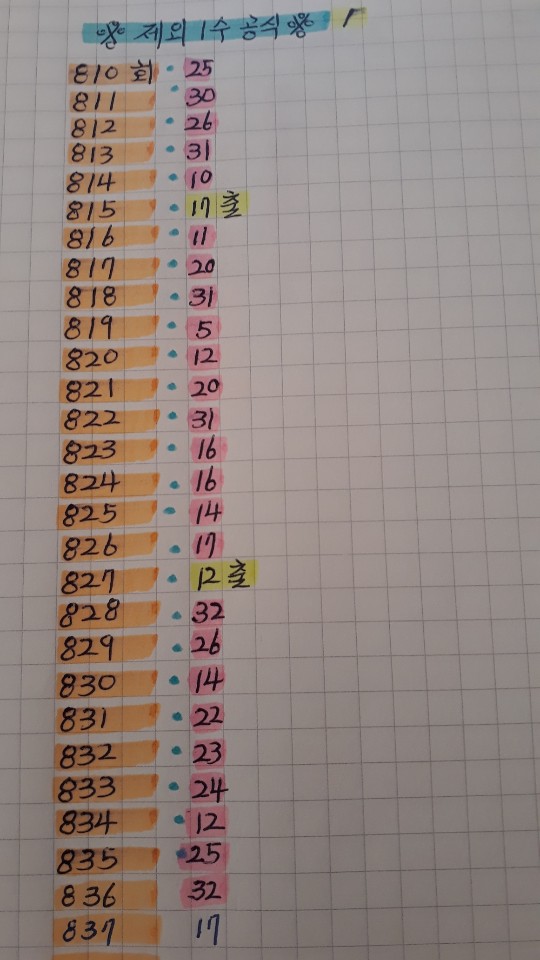 ※ 제외 1수 공식 ※ 1
810 회 · 25
811 · 30
812 · 26
813 · 31
814 · 10
815 · 17 출
816 · 11
817 · 20
818 · 31
819 · 5
820 · 12
821 · 20
822 · 31
823 · 16
824 · 16
825 · 14
826 · 17
827 · 12 출
828 · 32
829 · 26
830 · 14
831 · 22
832 · 23
833 · 24
834 · 12
835 · 25
836 · 32
837 17